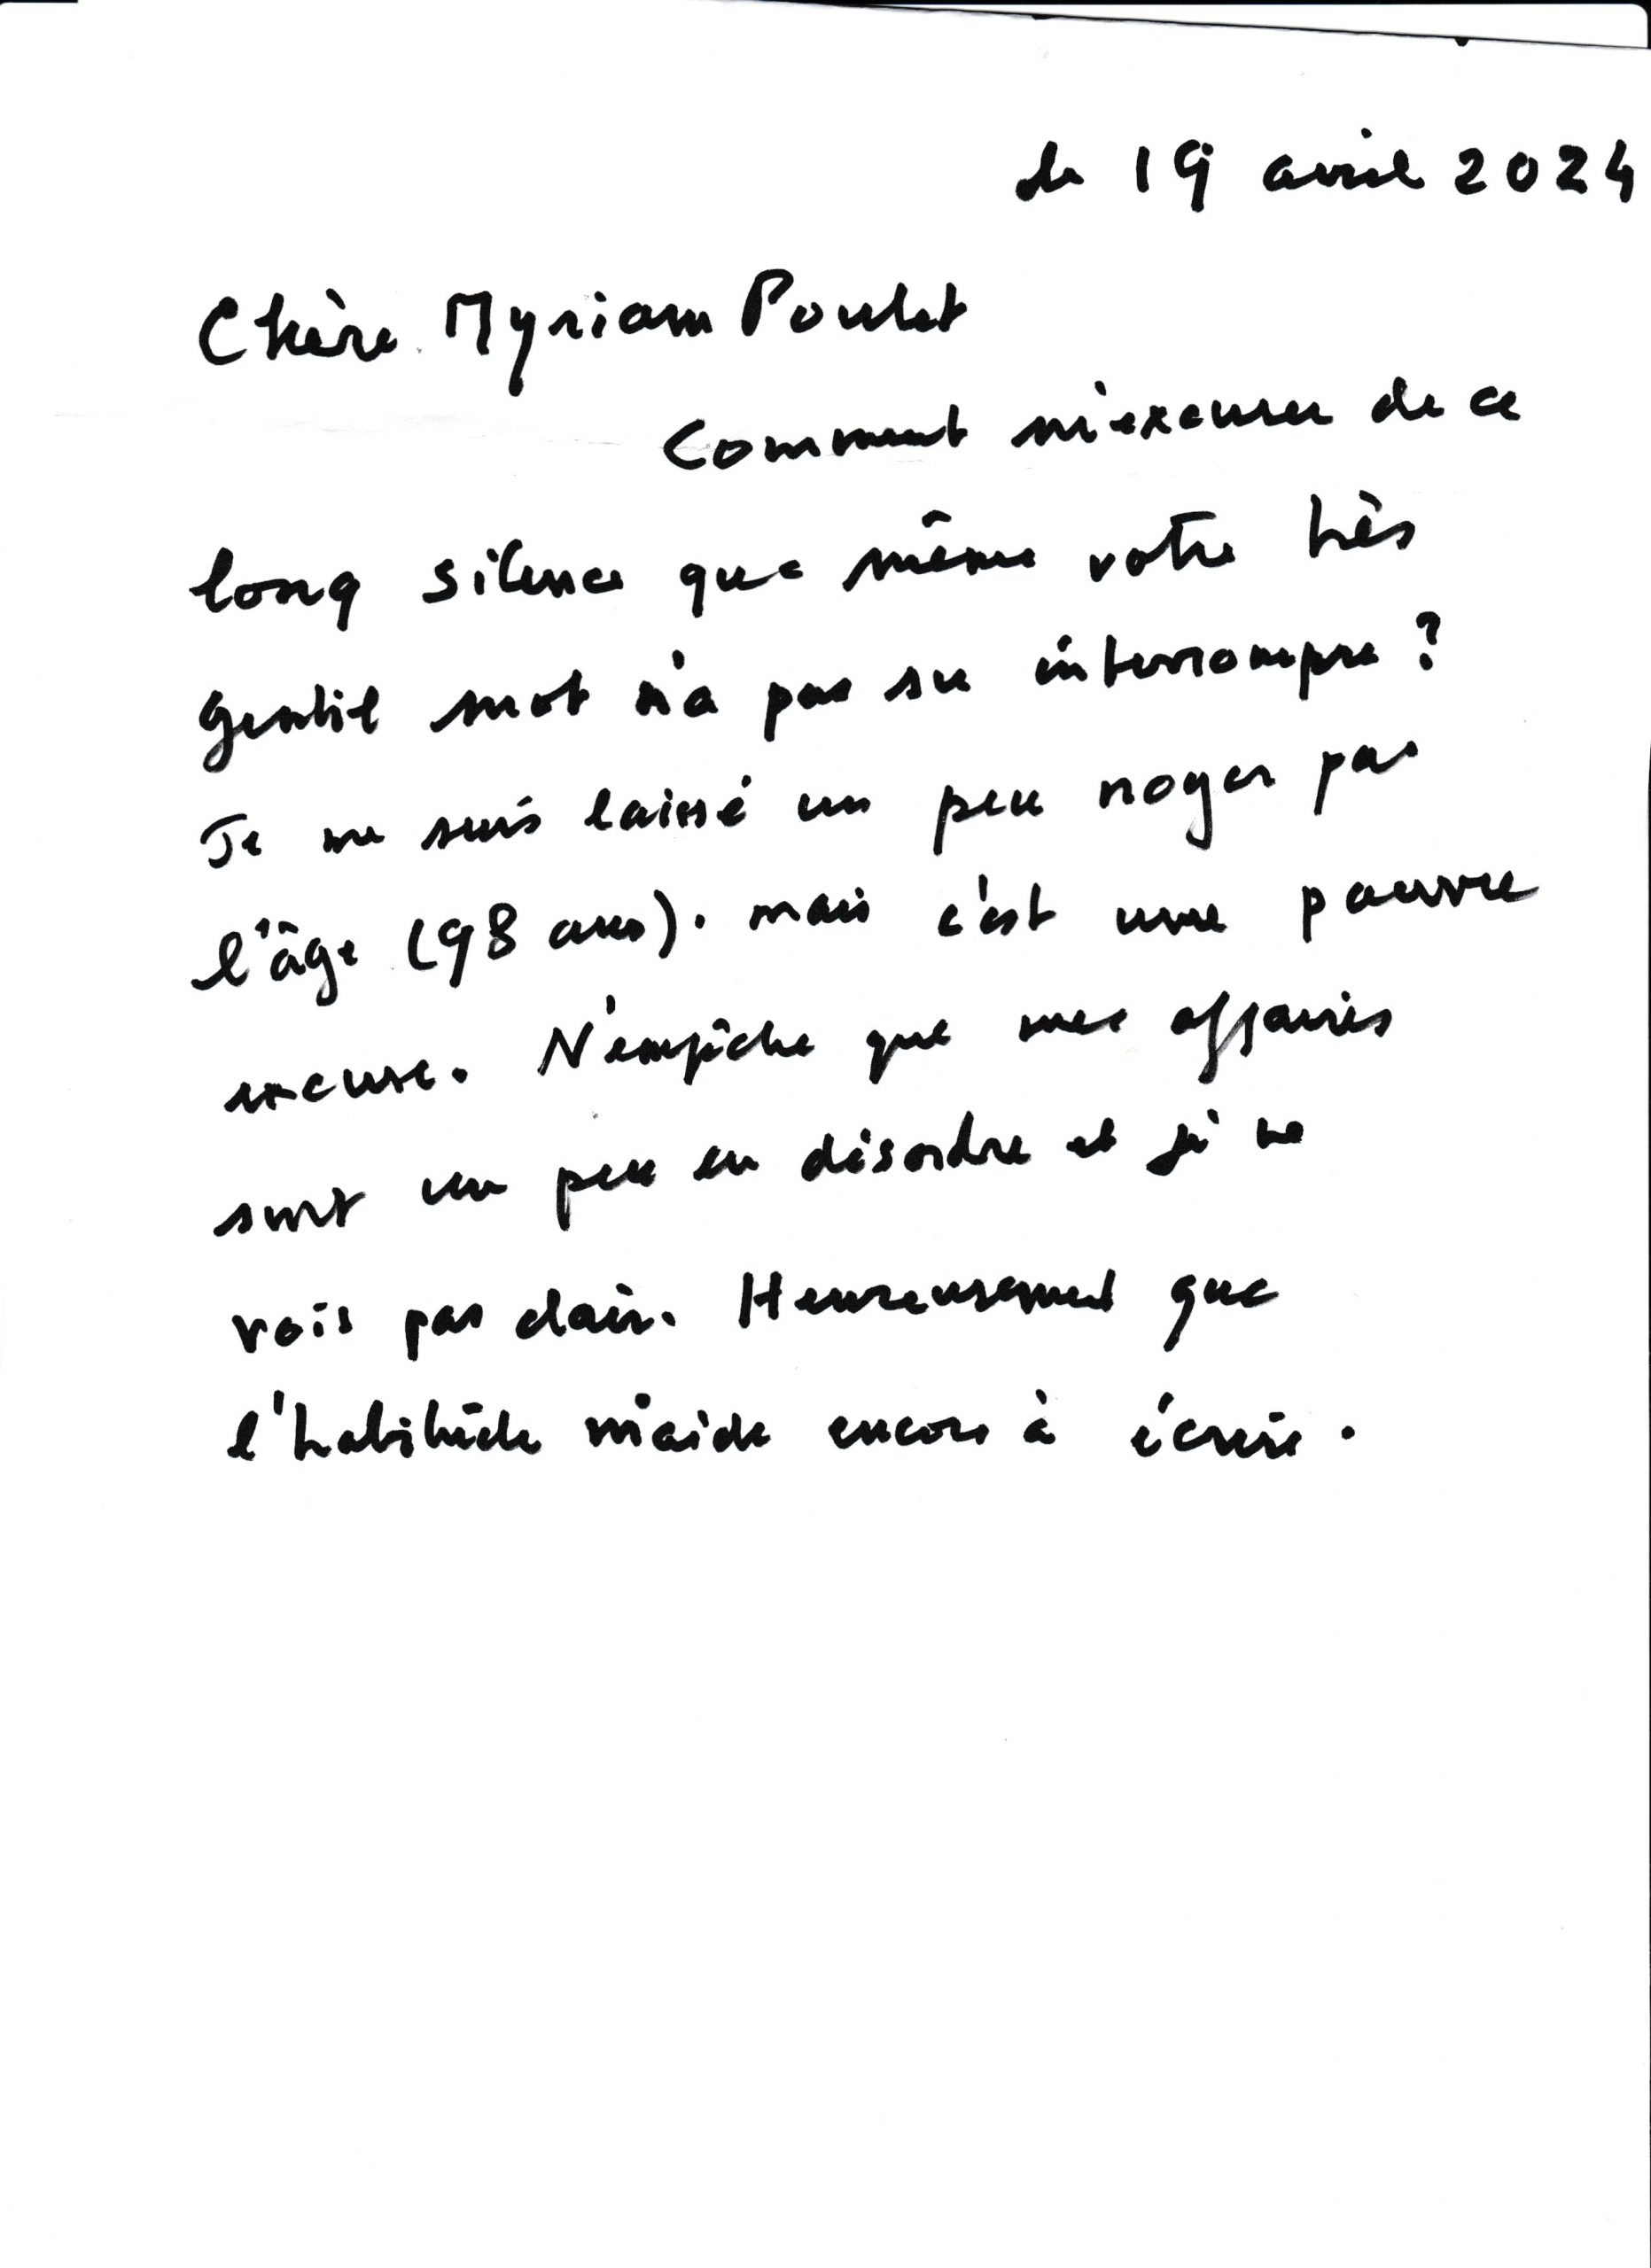 le 19 avril 2024
Chère Myriam Poulet
Comment m'excuser de ce
long silence que même votre très
gentil mot n'a pas su interrompre ?
Je me suis laissé un peu noyer par
l'âge (98 ans). mais c'est une pauvre
excuse. N'empêche que mes affaires
sont un peu en désordre et je ne
vois pas clair. Heureusement que
l'habitude m'aide encore à écrire.